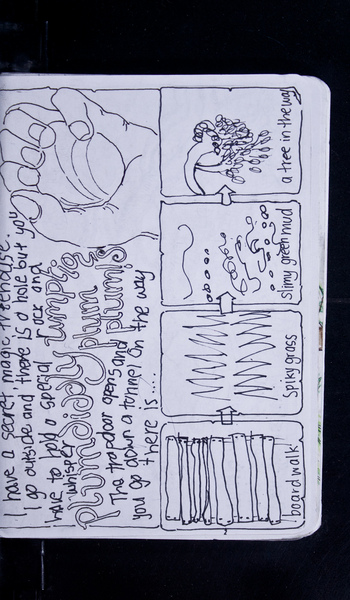 I have a secret magic treehouse.
I go outside and there is a hole but you
have to hold a special rock and
whisper
plumdiddly zumptig
plum plum's
The trapdoor opens and
you go down a tunnel on the way
there is ....
boardwalk
Spiky grass
slimy green mud
a tree in the way